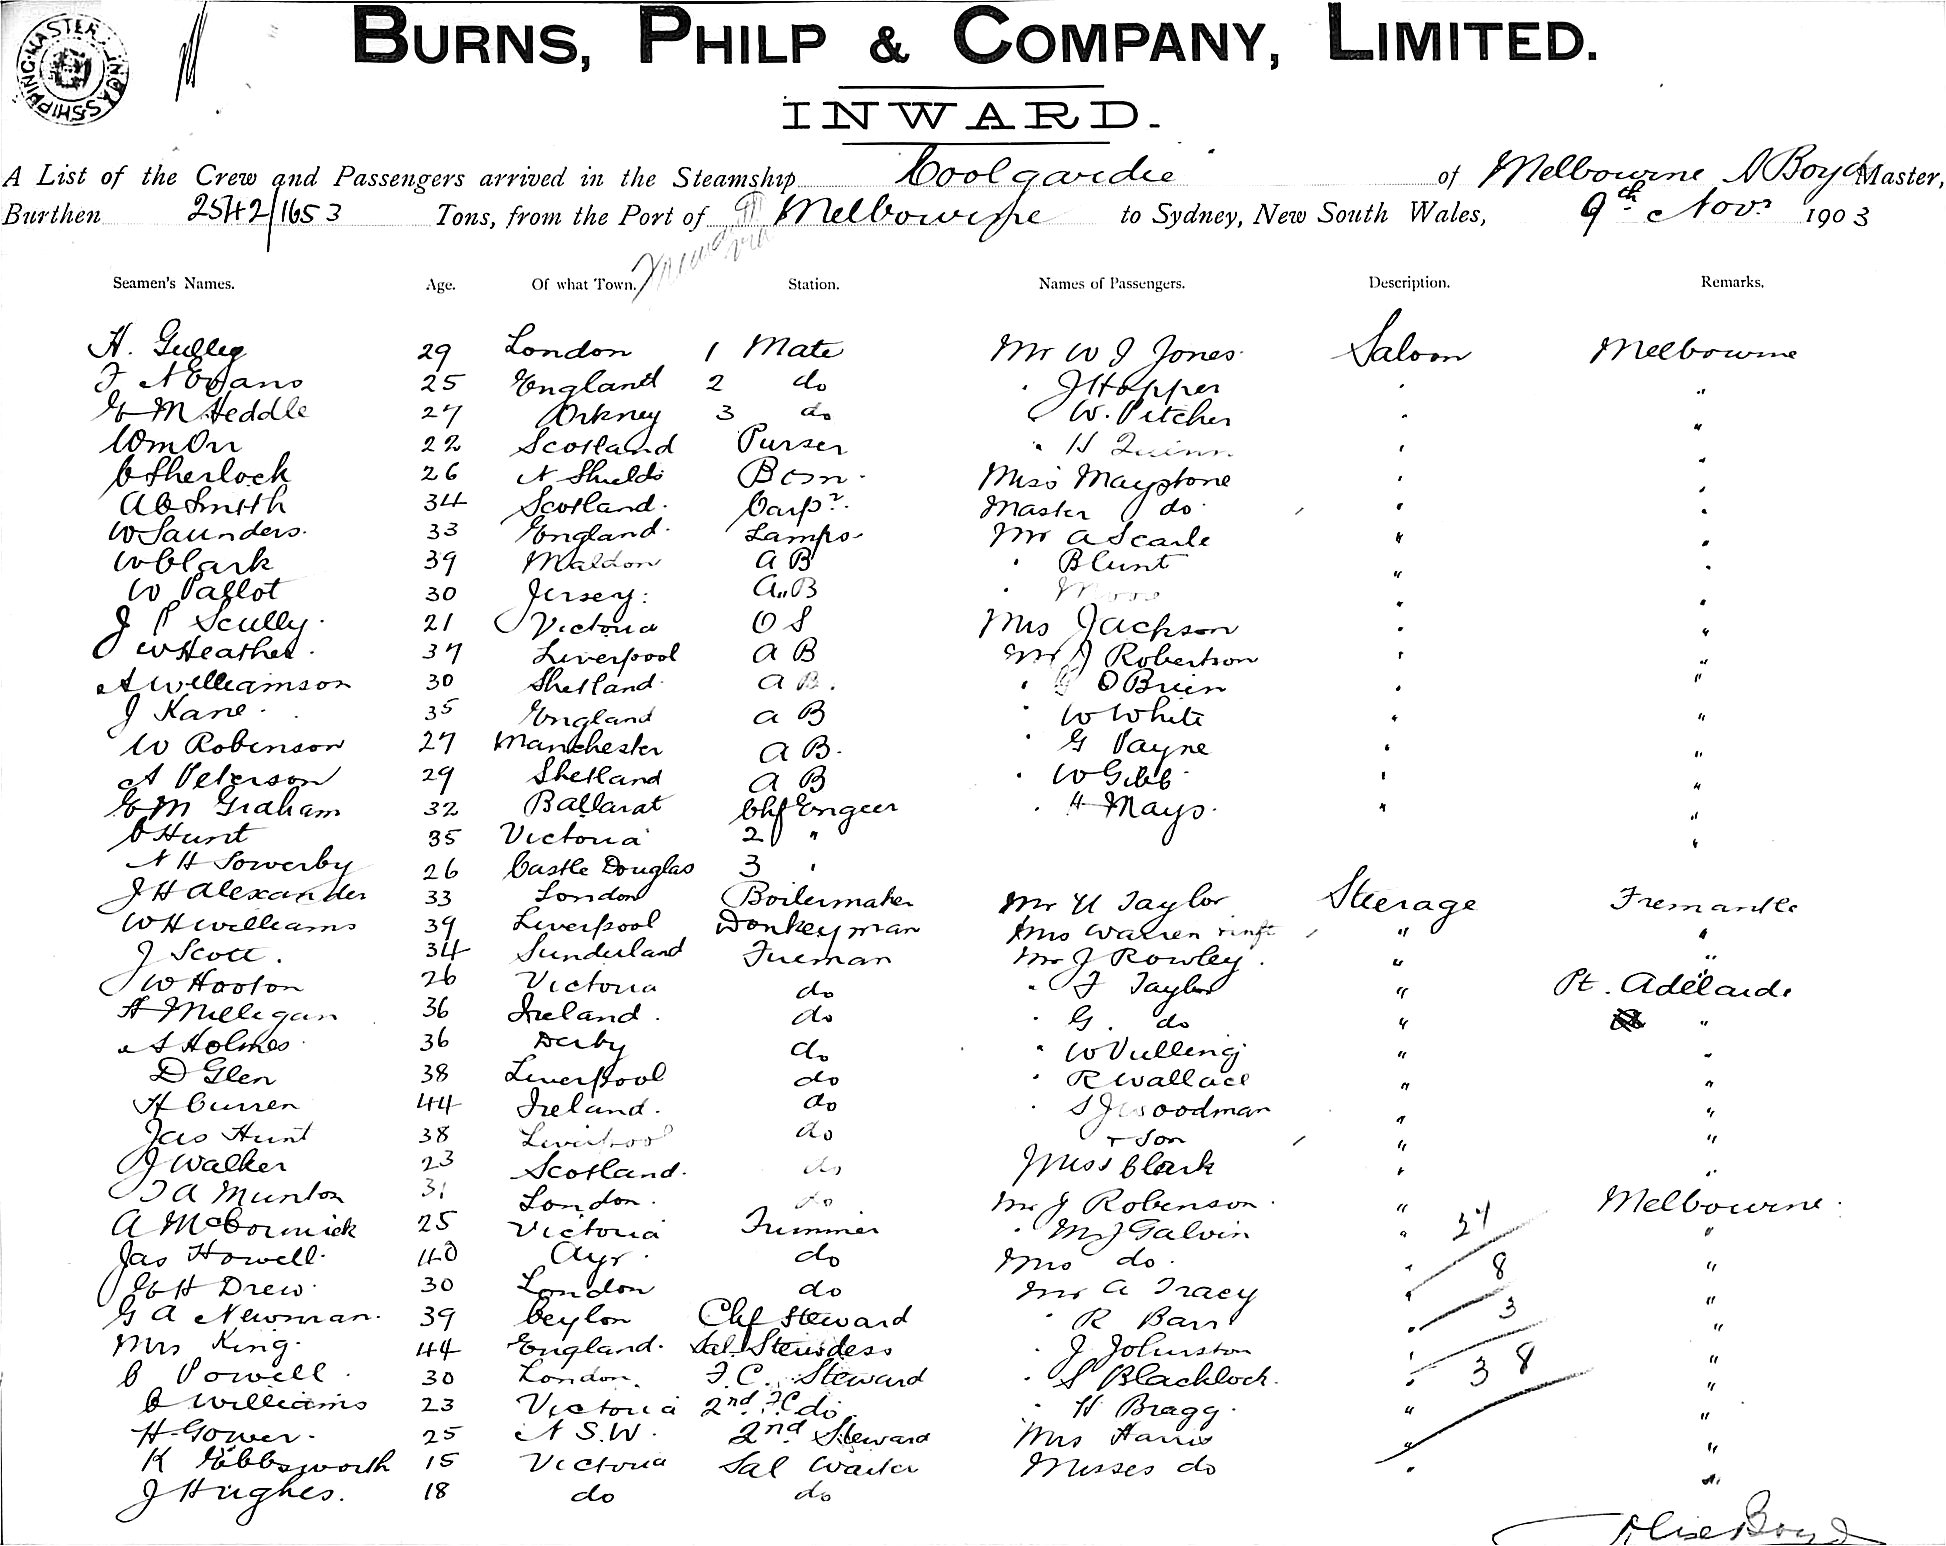 SHIPPING MASTER
BURNS, PHILP & COMPANY, LIMITED.
INWARD.
A List of the Crew and Passengers arrived in the Steamship Coolgardie of Melbourne A Boyd Master,
Burthen 2542/1653 Tons, from the Port of Melbourne to Sydney, New South Wales, 9th Nov. 1903
Seamen's Names. Age. Of what Town. Station. Names of Passengers. Description. Remarks.
H. 29 London 1 Mate Mr W J Jones Saloon Melbourne
F N Evans 25 England 2 do " J Hopper " "
G M Heddle 27 Orkney 3 do " W. Pitcher " "
Wm Orr 22 Scotland Purser " H Quinn " "
C Sherlock 26 N Shields Bosn. Miss Maystone " "
A C Smith 34 Scotland. Carpr. Master do " "
W Saunders. 33 England. Lamps Mr A Searle " "
W Clark 39 Maldon A B " Blunt " "
W Pallot 30 Jersey: A.B " " "
J P Scully. 21 Victoria O S Mrs Jackson " "
W Heather. 37 Liverpool A B Mr J Robertson " "
A Williamson 30 Shetland A B. " O Brien " "
J Kane. 35 England A B " W White " "
W Robinson 27 Manchester A B. " G Payne " "
A Peterson 29 Shetland A B " W Gibb " "
G M Graham 32 Ballarat Chf Engeer " H Mays. " "
C Hunt 35 Victoria 2 " "
N H Sowerby 26 Castle Douglas 3 "
J H Alexander 33 London Boilermaker Mr H Taylor Steerage Fremantle
W H Williams 39 Liverpool Donkeyman Mrs Warren & inft " "
J Scott. 34 Sunderland Fireman Mr J Rowley. " "
W Hooton 26 Victoria do " F Taylor " Pt. Adelaide
H Milligan 36 Ireland. do " G. do " "
A S Holmes 36 Derby do " W Vulling " "
D Glen 38 Liverpool do " R Wallace " "
H Curren 44 Ireland. do " S J Woodman " "
Jas Hunt 38 Liverpool do + Son " "
J Walker 23 Scotland. do Miss Clark " "
T A Munton 31 London. do Mr J Robinson. " Melbourne.
A McCormick 25 Victoria Trimmer " M J Galvin " 27 "
Jas Howell. 40 Ayr. do Mrs do. " 8 "
G H Drew. 30 London do Mr A Tracy " "
G A Newman. 39 Ceylon Chf Steward " R Barr " 3 "
Mrs King. 44 England. Sal. Stewdess " J Johnston " "
C Powell. 30 London. F.C. Steward " S Blacklock. " 38 "
C Williams 23 Victoria 2nd F C do " H Bragg. " "
H Gower. 25 N S.W. 2nd Steward Mrs Harris " "
K Ebbsworth 15 Victoria Sal Waiter Misses do " "
J Hughes. 18 do do
Boyd